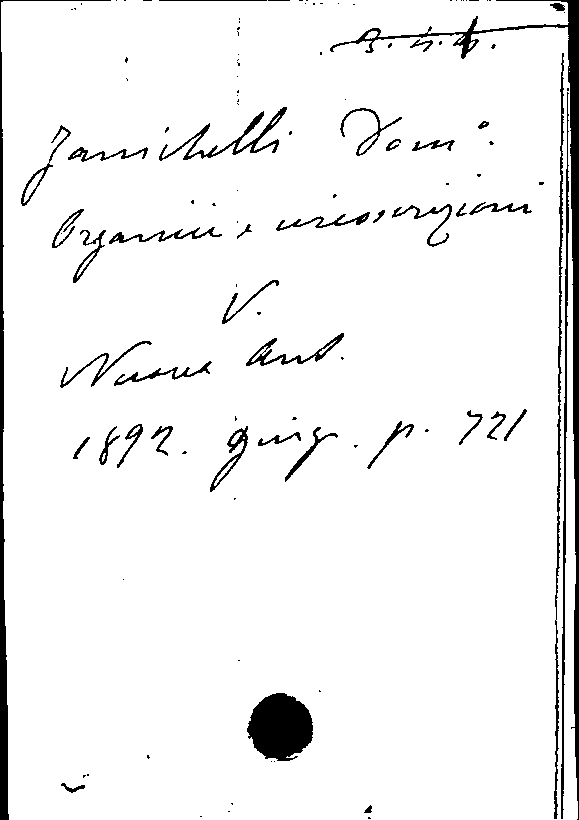 3.4.4.
Zanichelli Domº.
Organici e circoscrizioni
V.
Nuova Ant.
1892. giug. p. 721